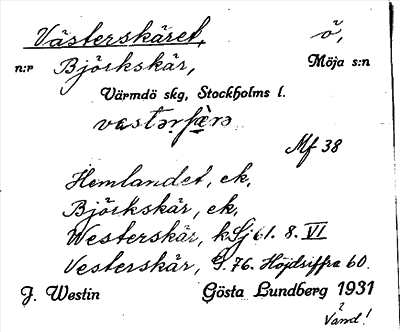 Västerskäret, ö,
n:r Björkskär, Möja s:n
Värmdö skg, Stockholms l.
Mf 38
Hemlandet, ek.
Björkskär, ek.
Westerskär, kSj 61. 8. VI
Vesterskär, G. 76. Höjdsiffra 60.
J. Westin Gösta Lundberg 1931
Vänd!